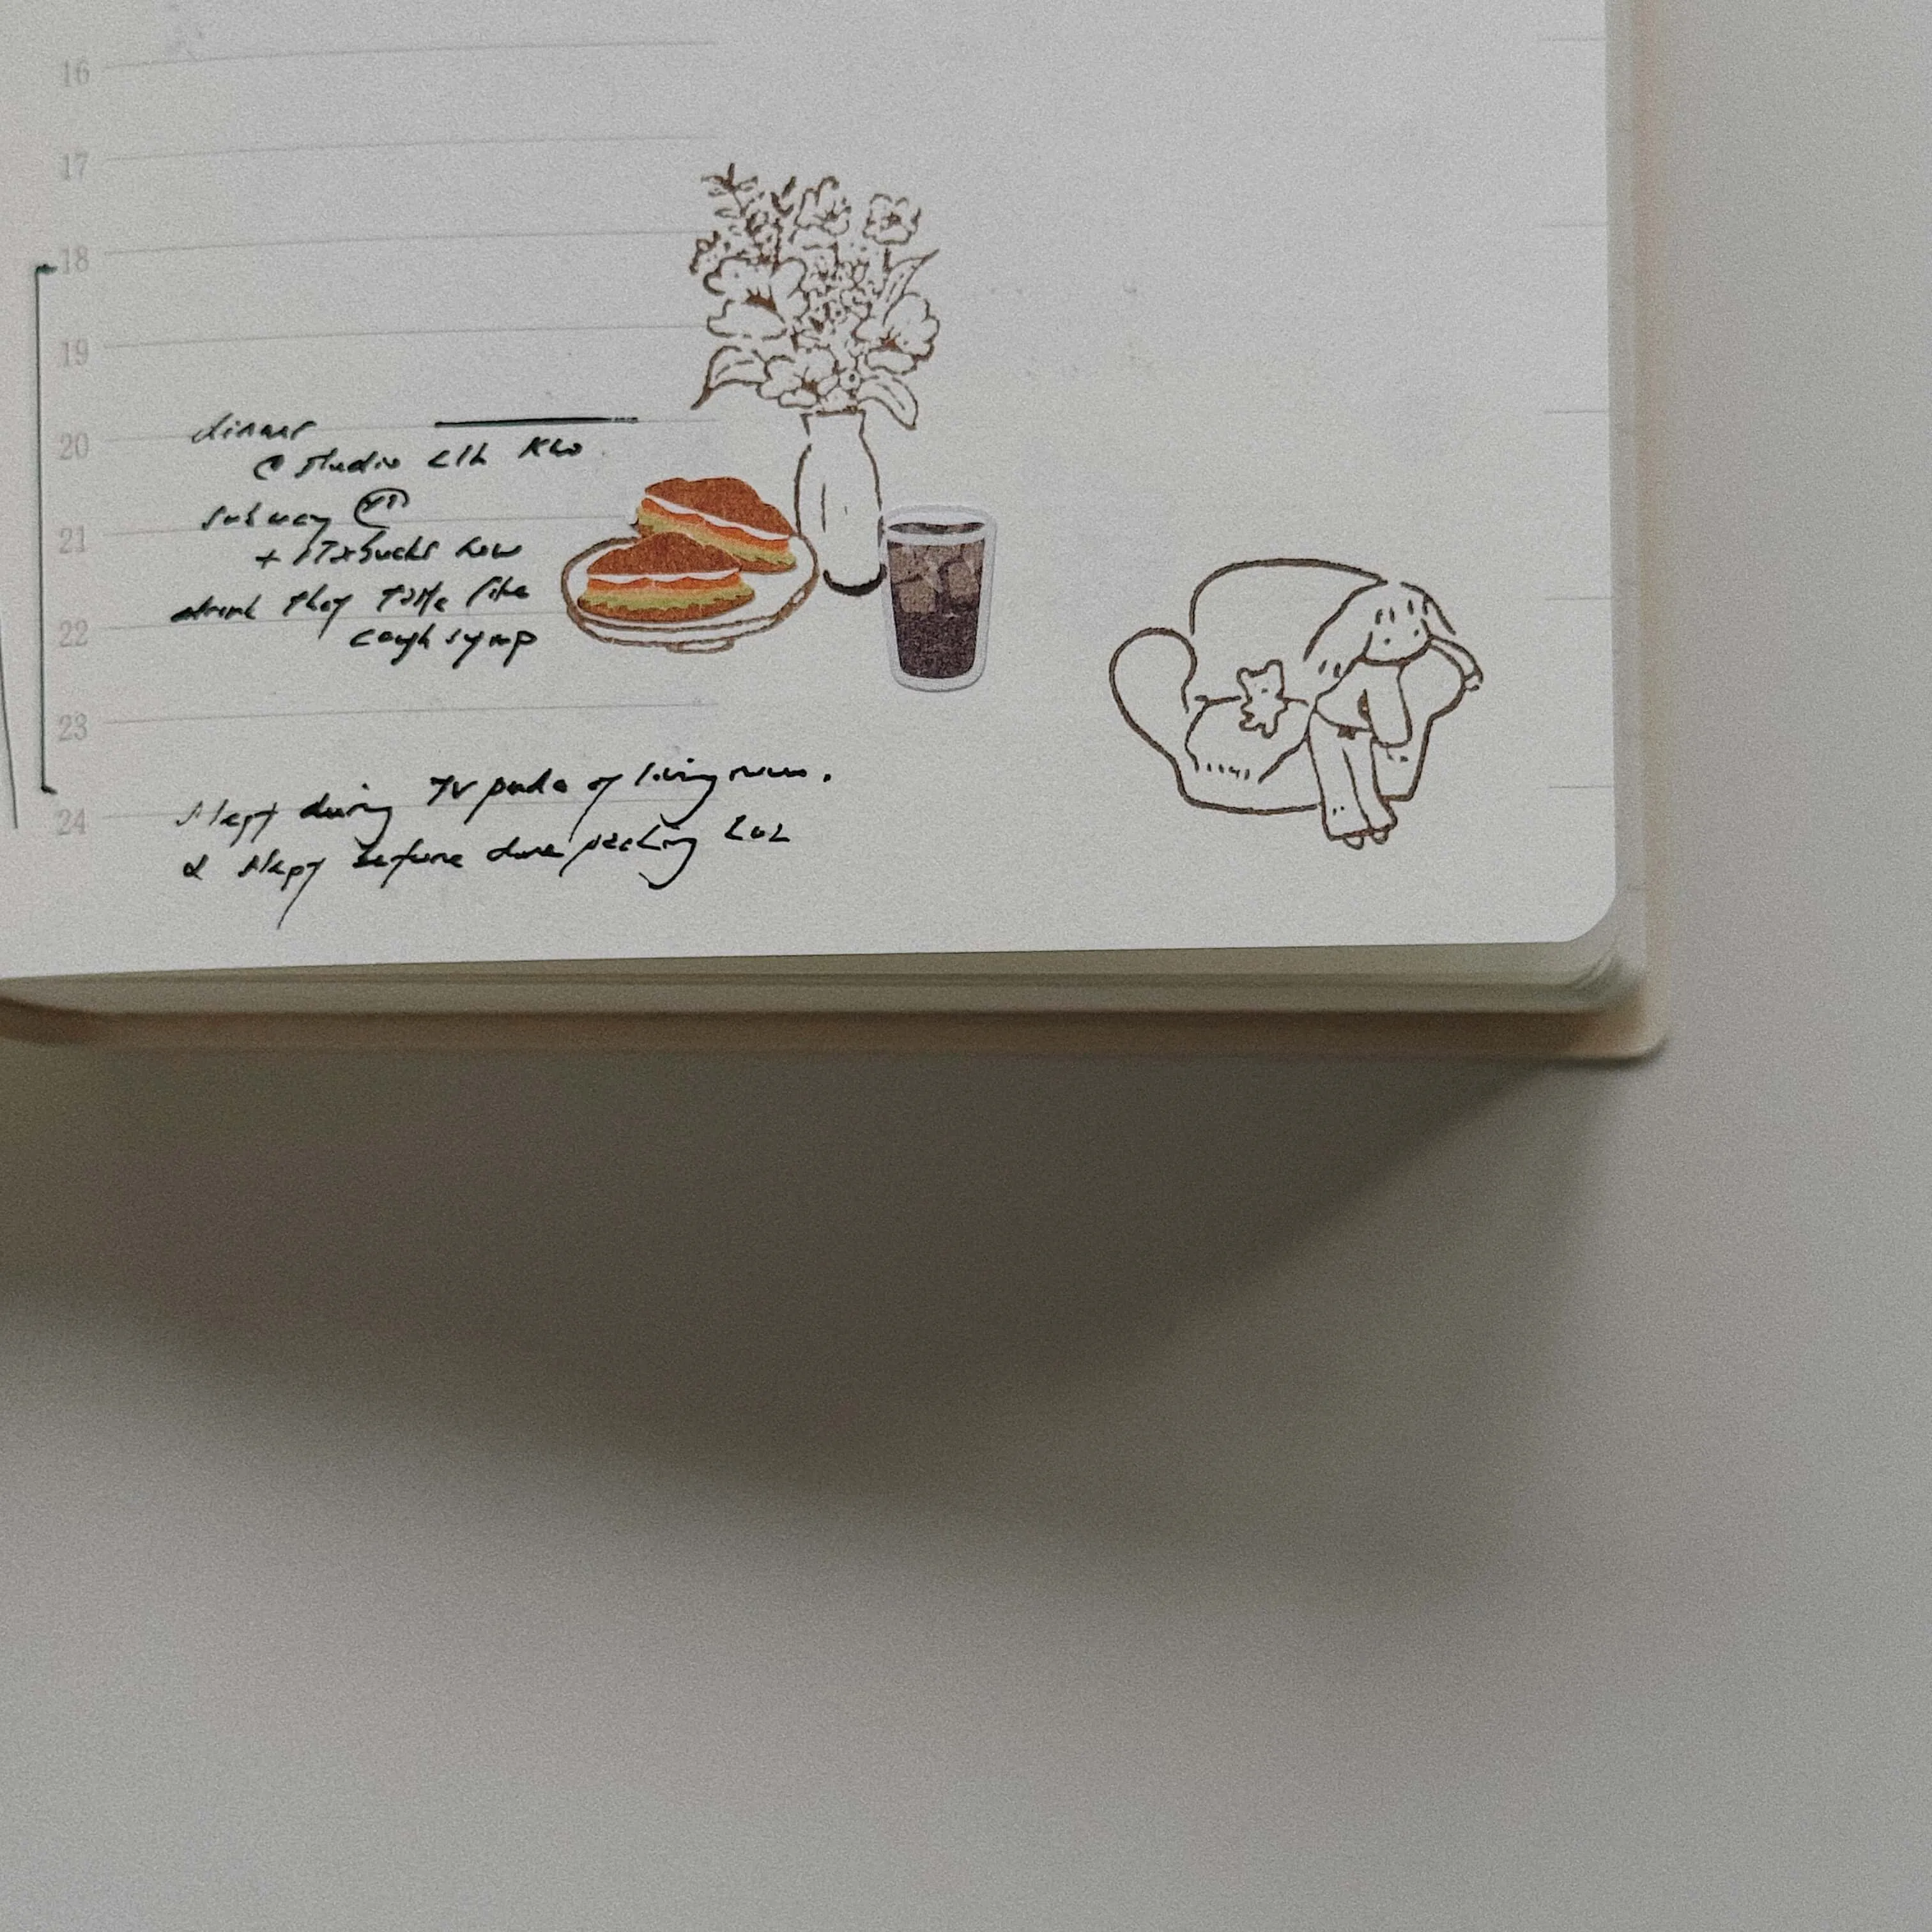 16
17
18
19
dinner
20
@ studio
subway
21
+ starbucks new
drink they taste like
22
cough syrup
23
slept during TV of living room.
24
& slept before done packing LOL